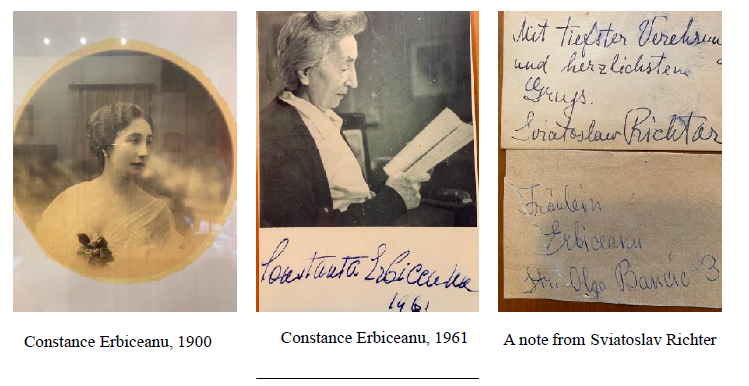 Constanta Erbiceanu
1961
Mit tiefster Verehrun
und herzlichsten
Gruß.
Sviatoslaw Richter
Fräulein
Erbiceanu
Str. Olga Bancic 3
Constance Erbiceanu, 1900
Constance Erbiceanu, 1961
A note from Sviatoslav Richter